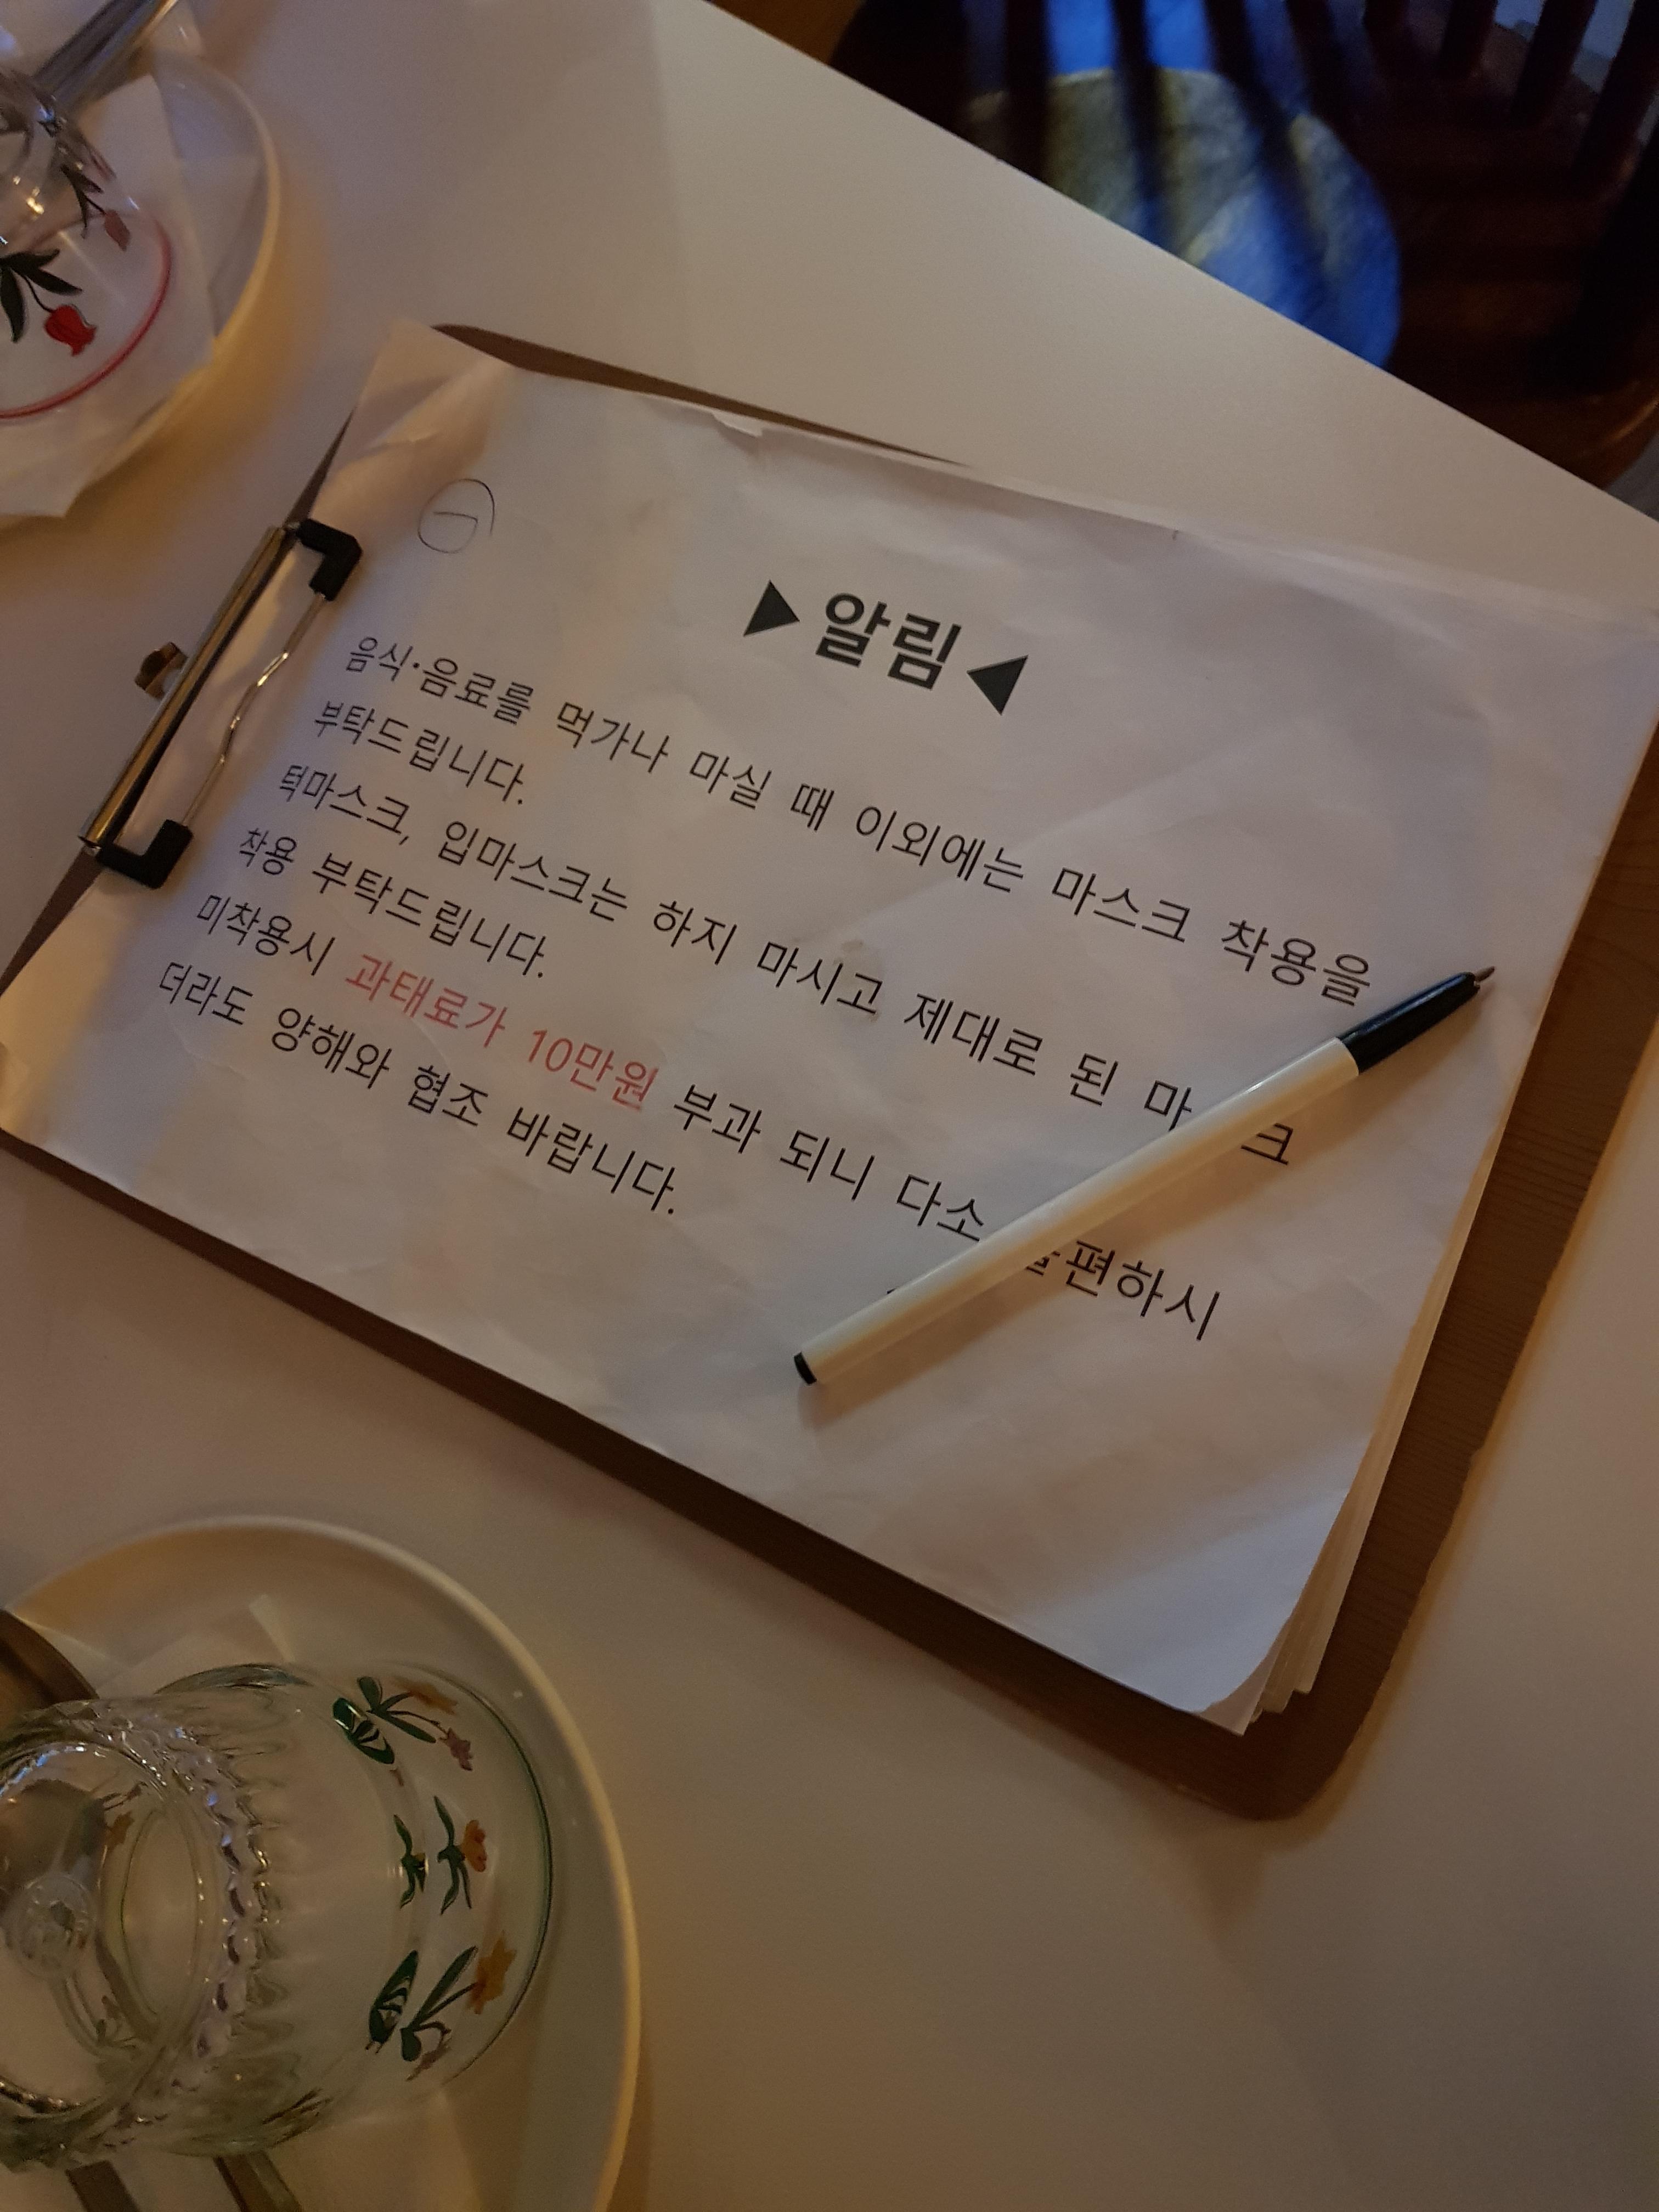 ▶알림◀
음식·음료를 먹가나 마실 때 이외에는 마스크 착용을
부탁드립니다.
턱마스크, 입마스크는 하지 마시고 제대로 된 마스크
착용 부탁드립니다.
미착용시 과태료가 10만원 부과 되니 다소 불편하시
더라도 양해와 협조 바랍니다.